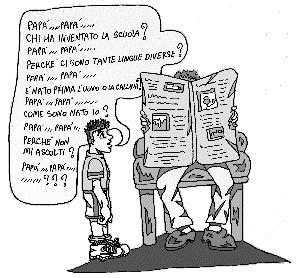 PAPA'.... PAPA'....
CHI HA INVENTATO LA SCUOLA?
PAPA'.... PAPA'....
PERCHE' CI SONO TANTE LINGUE DIVERSE?
PAPA'.... PAPA'....
E' NATO PRIMA L'UOVO O LA GALLINA?
PAPA'.... PAPA'....
COME SONO NATO IO?
PAPA'.... PAPA'....
PERCHE' NON
MI ASCOLTI?
PAPA'.... PAPA'....
......???